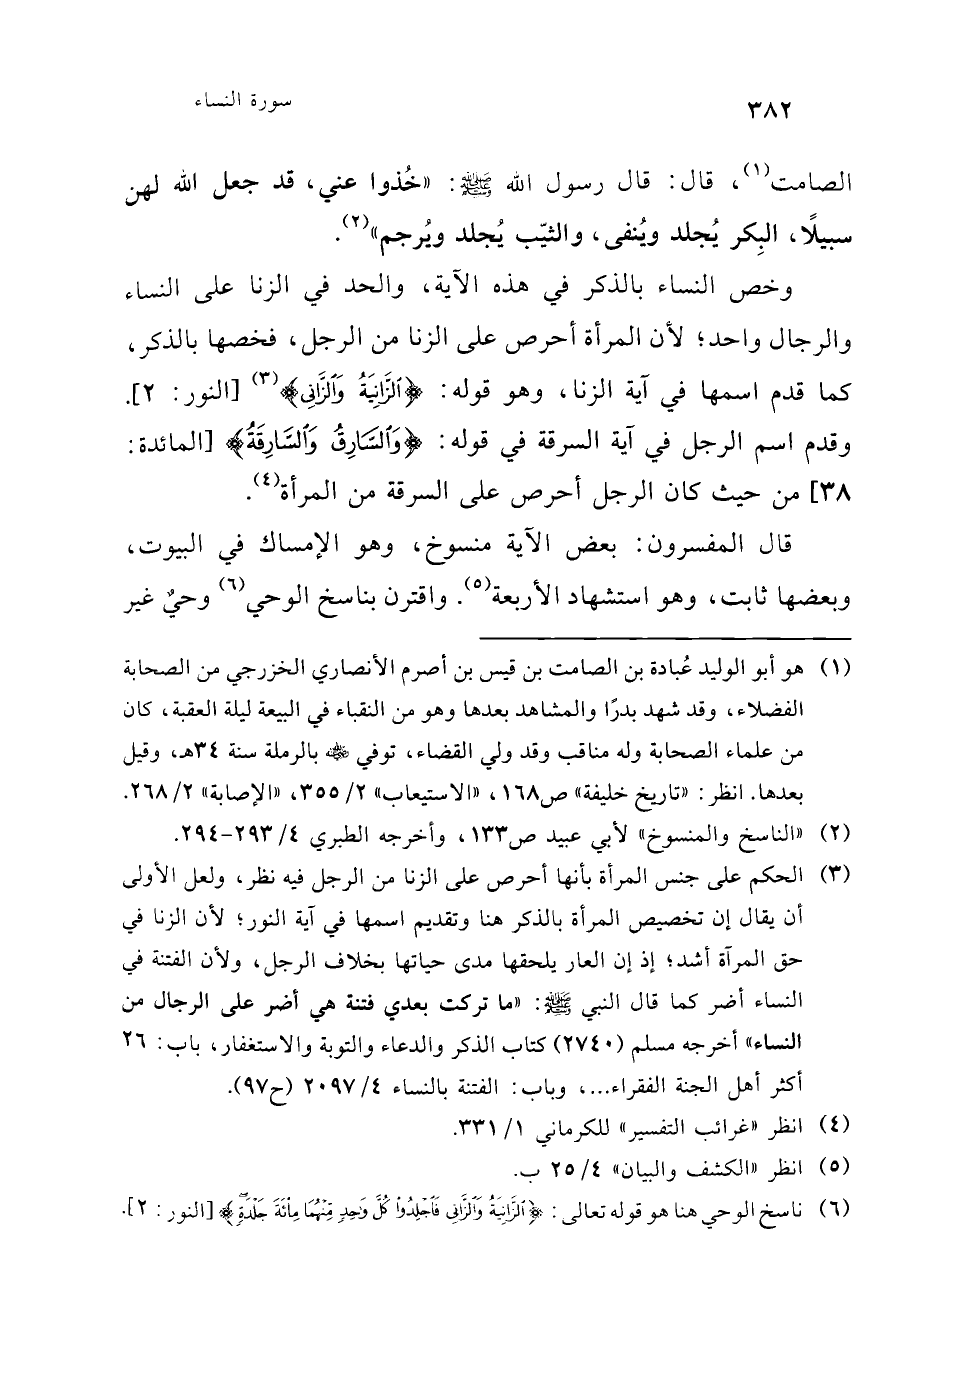 ٣٨٢
سورة النساء
الصامت(١)، قال: قال رسول الله ﷺ: «خُذوا عني، قد جعل الله لهن
سبيلًا، البِكر يُجلد ويُنفى، والثيّب يُجلد ويُرجم»(٢).
وخص النساء بالذكر في هذه الآية، والحد في الزنا على النساء
والرجال واحد؛ لأن المرأة أحرص على الزنا من الرجل، فخصها بالذكر،
كما قدم اسمها في آية الزنا، وهو قوله: ﴿ٱلزَّانِيَةُ وَٱلزَّانِى﴾(٣) [النور: ٢].
وقدم اسم الرجل في آية السرقة في قوله: ﴿وَٱلسَّارِقُ وَٱلسَّارِقَةُ﴾ [المائدة:
٣٨] من حيث كان الرجل أحرص على السرقة من المرأة(٤).
قال المفسرون: بعض الآية منسوخ، وهو الإمساك في البيوت،
وبعضها ثابت، وهو استشهاد الأربعة(٥). واقترن بناسخ الوحي(٦) وحيٌ غير
(١) هو أبو الوليد عُبادة بن الصامت بن قيس بن أصرم الأنصاري الخزرجي من الصحابة
الفضلاء، وقد شهد بدرًا والمشاهد بعدها وهو من النقباء في البيعة ليلة العقبة، كان
من علماء الصحابة وله مناقب وقد ولي القضاء، توفي رضي الله عنه بالرملة سنة ٣٤هـ، وقيل
بعدها. انظر: «تاريخ خليفة» ص١٦٨، «الاستيعاب» ٢/ ٣٥٥، «الإصابة» ٢/ ٢٦٨.
(٢) «الناسخ والمنسوخ» لأبي عبيد ص١٣٣، وأخرجه الطبري ٤/ ٢٩٣-٢٩٤.
(٣) الحكم على جنس المرأة بأنها أحرص على الزنا من الرجل فيه نظر، ولعل الأولى
أن يقال إن تخصيص المرأة بالذكر هنا وتقديم اسمها في آية النور؛ لأن الزنا في
حق المرآة أشد؛ إذ إن العار يلحقها مدى حياتها بخلاف الرجل، ولأن الفتنة في
النساء أضر كما قال النبي ﷺ: «ما تركت بعدي فتنة هي أضر على الرجال من
النساء» أخرجه مسلم (٢٧٤٠) كتاب الذكر والدعاء والتوبة والاستغفار، باب: ٢٦
أكثر أهل الجنة الفقراء...، وباب: الفتنة بالنساء ٤/ ٢٠٩٧ (ح٩٧).
(٤) انظر «غرائب التفسير» للكرماني ١/ ٣٣١.
(٥) انظر «الكشف والبيان» ٤/ ٢٥ ب.
(٦) ناسخ الوحي هنا هو قوله تعالى: ﴿ٱلزَّانِيَةُ وَٱلزَّانِى فَٱجْلِدُوا۟ كُلَّ وَٰحِدٍ مِّنْهُمَا مِا۟ئَةَ جَلْدَةٍ﴾ [النور: ٢].